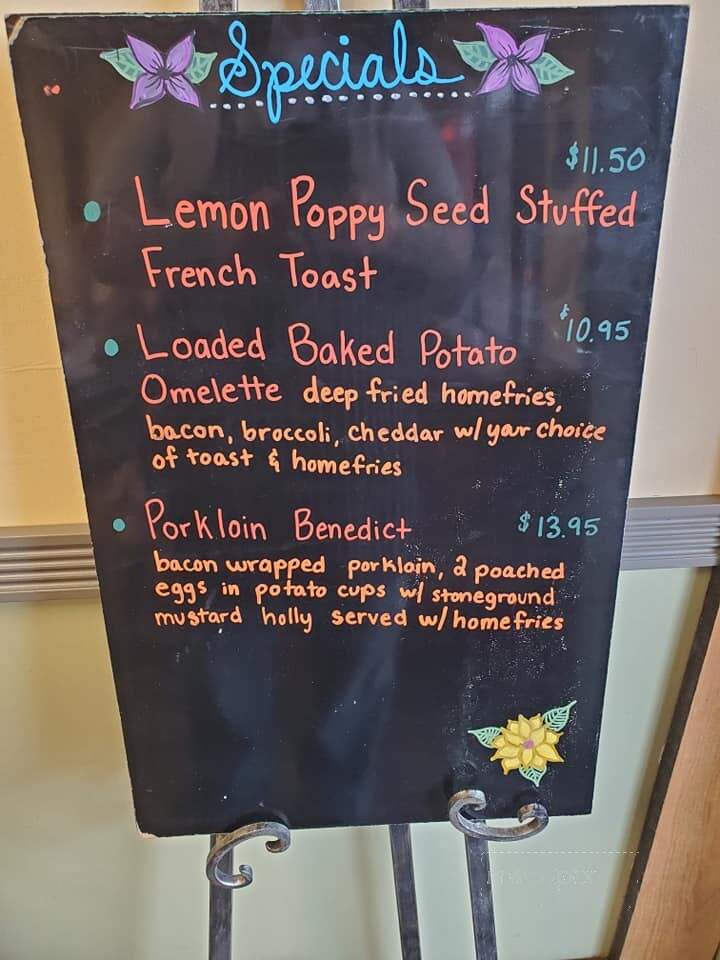 Specials
$11.50
• Lemon Poppy Seed Stuffed
French Toast
$10.95
• Loaded Baked Potato
Omelette deep fried homefries,
bacon, broccoli, cheddar w/ your choice
of toast & homefries
• Porkloin Benedict $13.95
bacon wrapped porkloin, 2 poached
eggs in potato cups w/ stoneground
mustard holly served w/ homefries